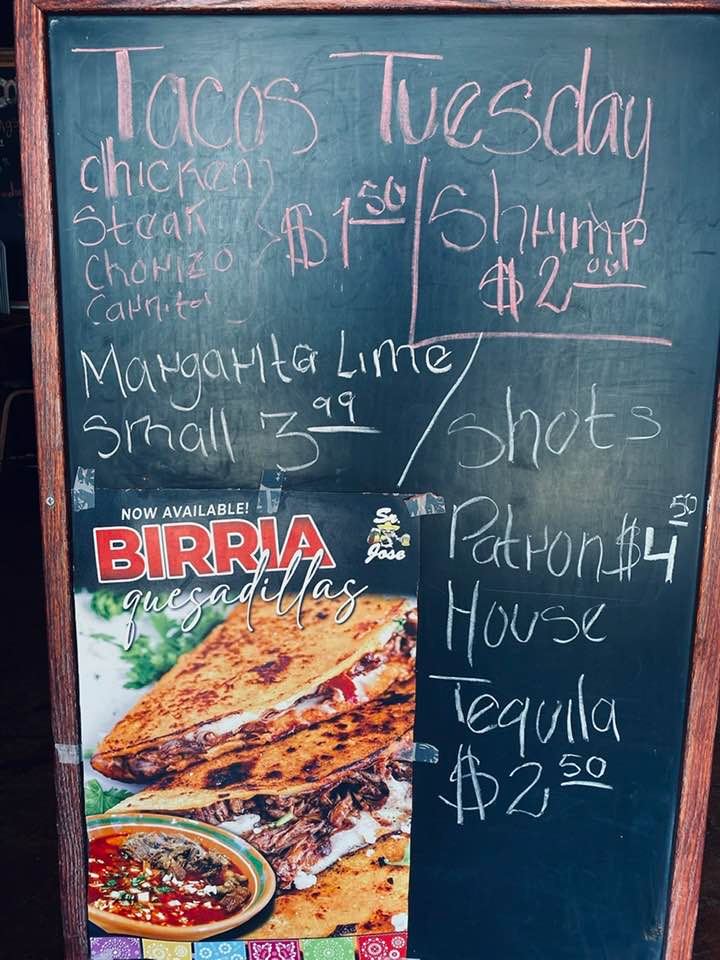 Tacos Tuesday
Chicken
Steak
Chorizo
Carnita
$1.50
Shrimp
$2.00
Margarita Lime
Small 3.99
Shots
Patron $4.50
House
Tequila
$2.50
NOW AVAILABLE!
BIRRIA
quesadillas
Sr
Jose